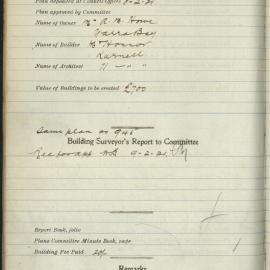 Plan deposited at Council's Office 8-2-21
Plan approved by Committee
Name of Owner Mr R. B. Howe
Yarra Bay
Name of Builder Mr Honor
Kurnell
Name of Architect " — "
Value of Buildings to be erected £700
Same plan as 945
Building Surveyor's Report to Committee
9-2-21
Report Book, folio
Plans Committee Minute Book, page
Building Fee Paid 20/-
Remarks